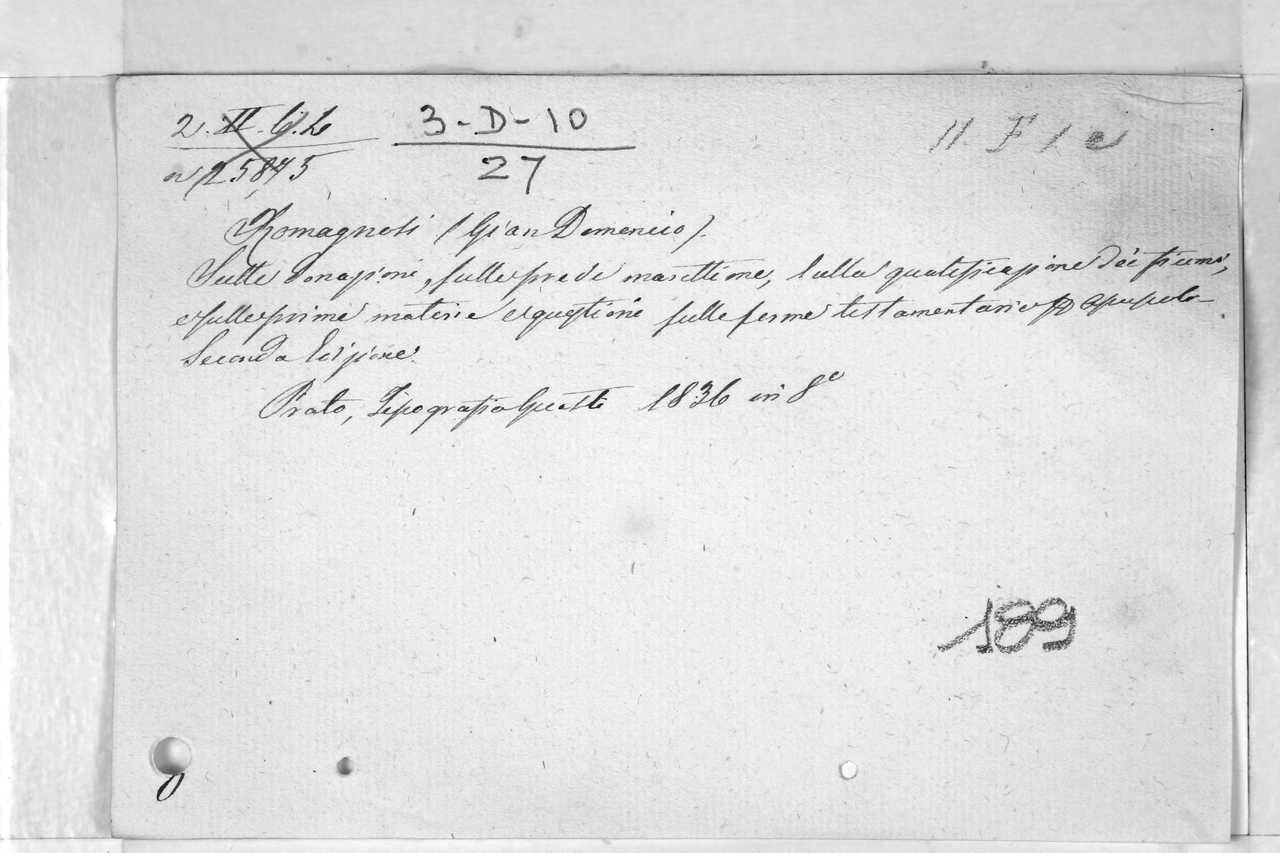 2. II. G. L 3-D-10 11 F 1 e
n 25845 27
Romagnosi (Gian Domenico).
Sulle donazioni, sulle prede marittime, sulla qualificazione dei fiumi,
e sulle prime materie e quistioni sulle forme testamentarie
Seconda Edizione.
Prato, Tipografia Guasti 1836 in 8°
189
0